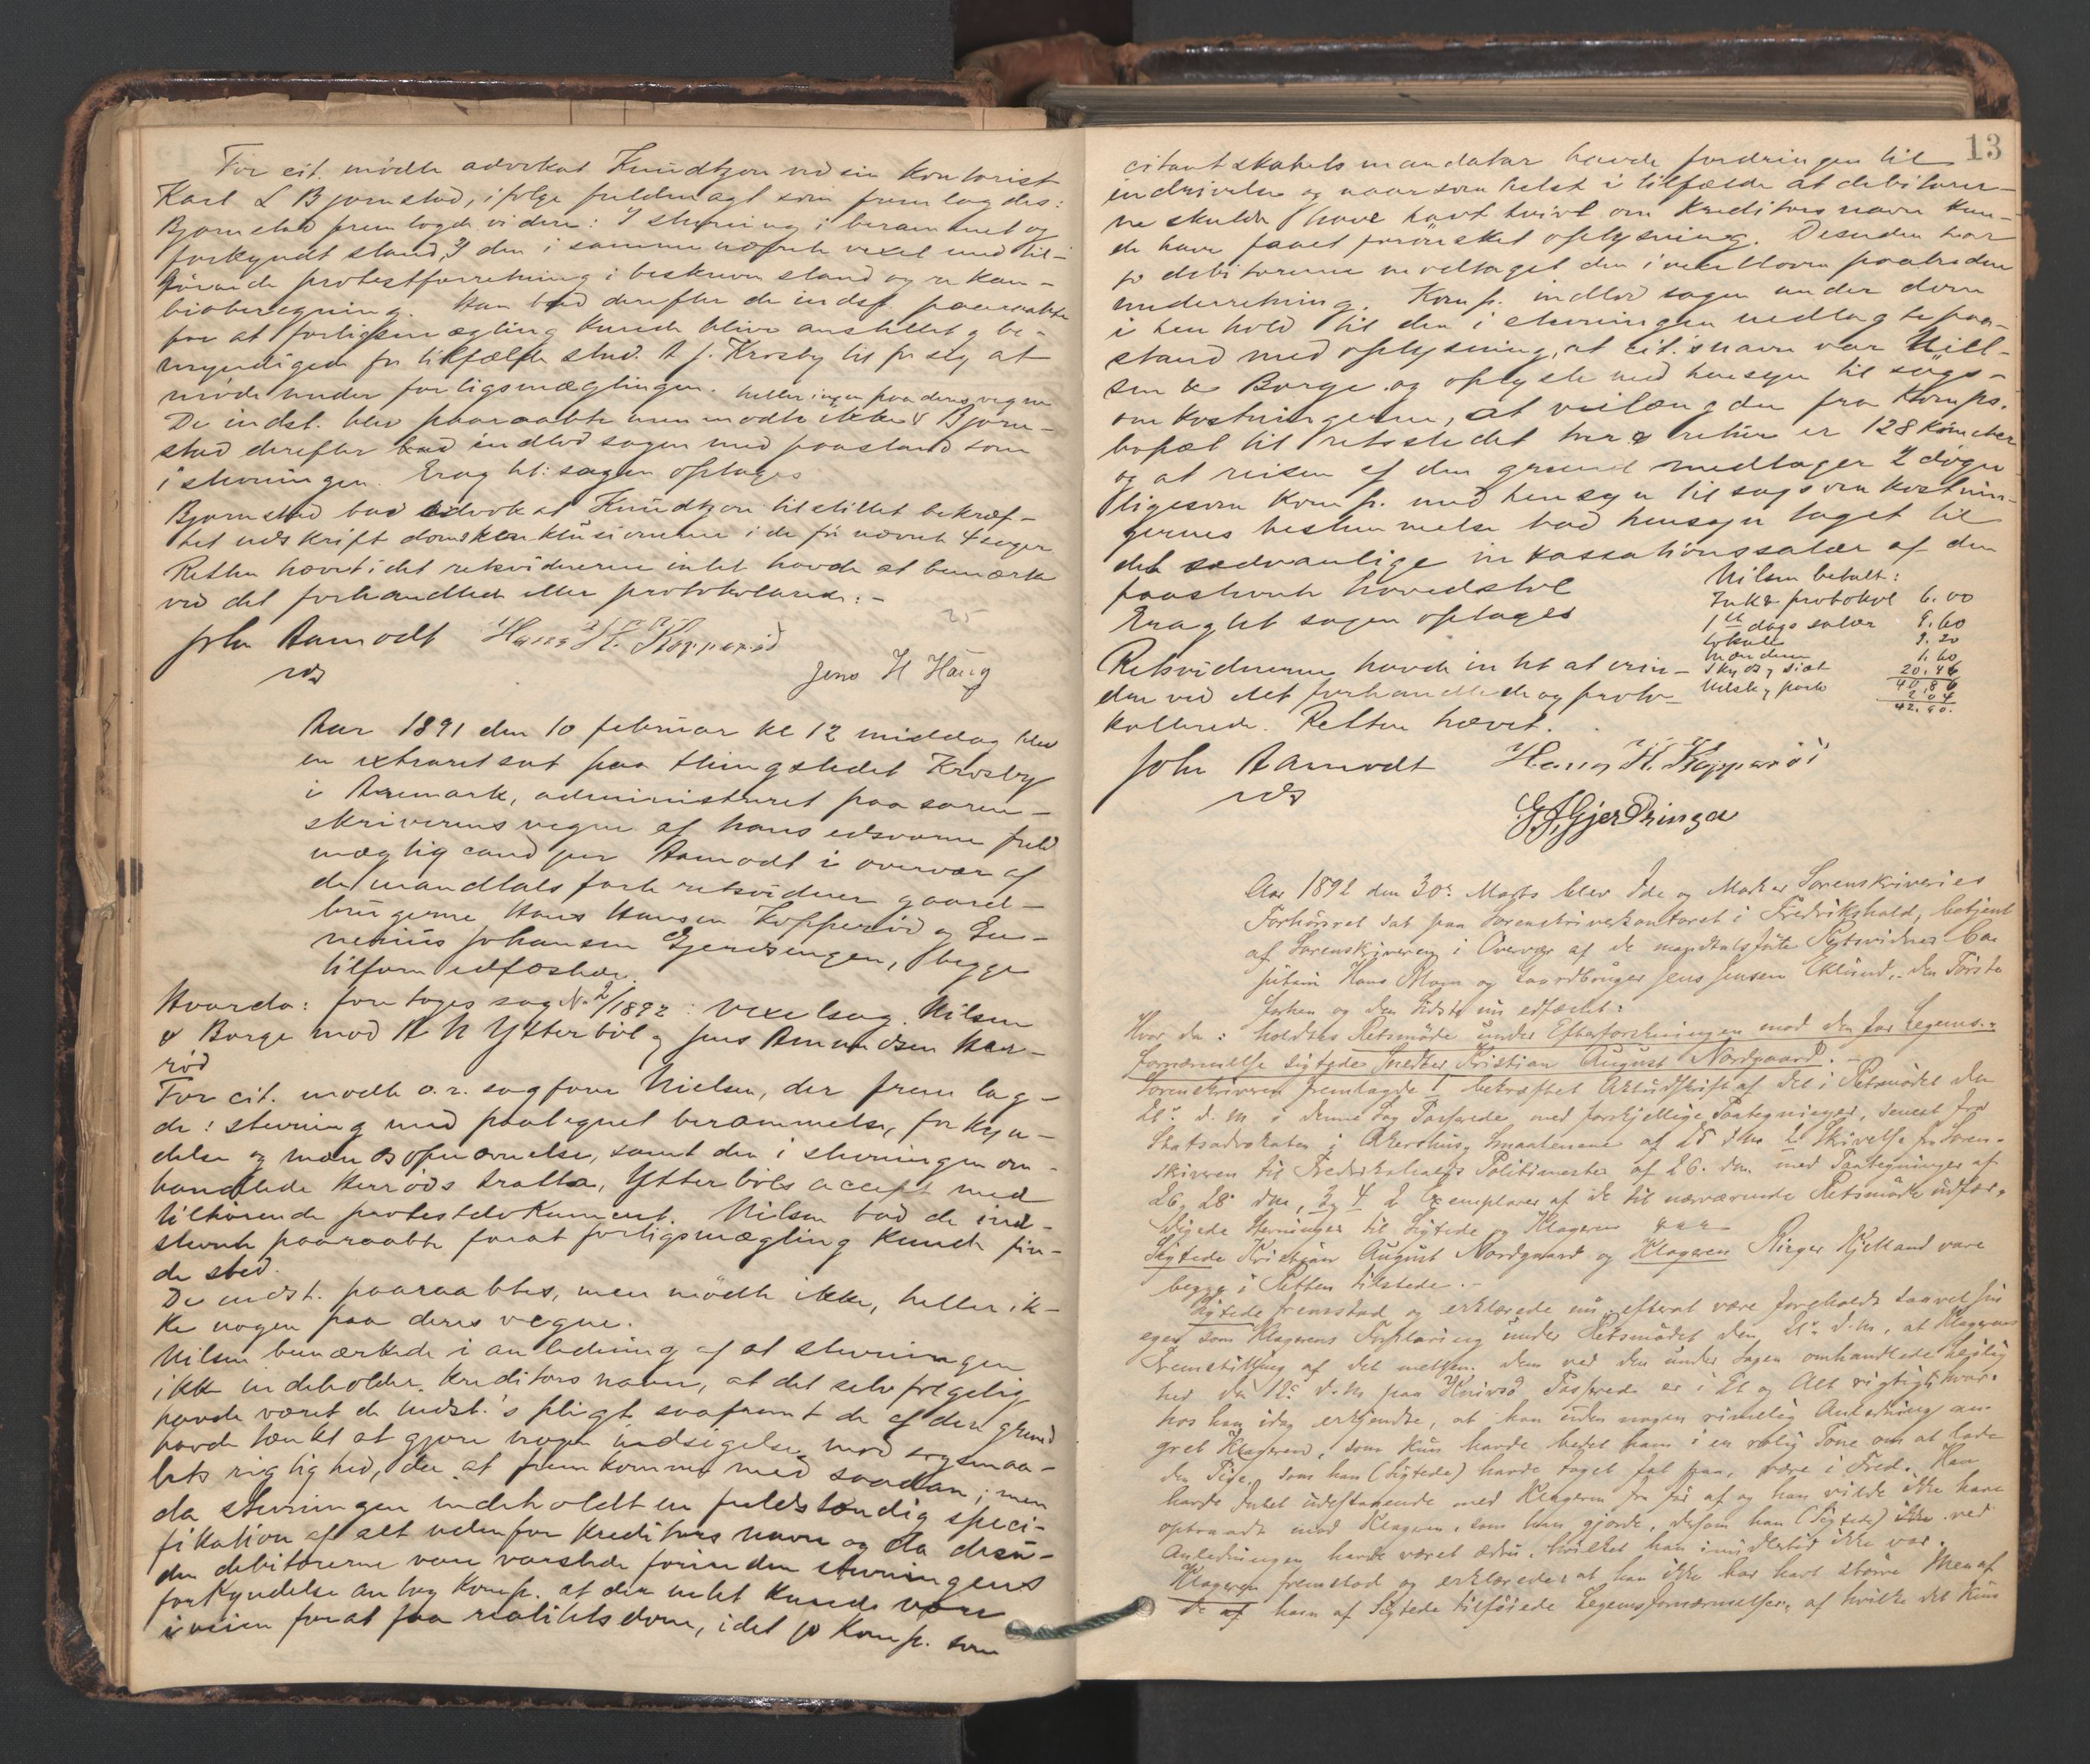 For cit. mødte advokat Knudtzon ved sin kontorist
Karl L Bjørnstad, ifølge fuldmagt som fremlagdes:
Bjørnstad fremlagde videre: 1 stevning i berammet og
forkyndt stand, 2 den i samme nævnte vexel med til-
hørende protestforretning i beskreven stand og re kam-
bioberegning. Han bad derefter de indst. paaraabte
for at forligsmægling kunde blive anstillet og be-
myndigede for tilfælde stud. A J. Krosby til for sig at
møde under forligsmæglingen.
De indst. blev paaraabte men mødte ikke heller ingen paa deres vegne & Bjørn-
stad derefter bad indlod sagen med paastand som
i stevningen. Eragtet: sagen optages
Bjørnstad bad advokat Knudtzon tilstillet bekræf-
tet udskrift domskonklusionerne i de før nævnte 4 sager
Retten hævet idet retsvidnerne intet havde at bemærke
ved det forhandlede eller protokolerede:-
John Aamodt Hans H. Kopperød
Jens H Haug
25
Aar 1891 den 10 februar kl 12 middag blev
en extraret sat paa thingstedet Krosby
i Aremark, administreret paa soren-
skriverens vegne af hans edsvorne fuld
mægtig cand jur Aamodt i overvær af
de mandtalsførte retsvidner gaard-
brugerne Hans Hansen Kopperød og Gu-
nerius Johansen Gjerdsengen, begge
tilforn edfæstede.
Hvorda: foretoges sag No 2/1892: Vexelsag. Nilsen
& Borge mod A N Ytterbøl og Jens Amundsen Hær-
rød
For cit. mødte o.r. sagfører Nielsen, der frem lag-
de: stevning med paategnet berammelse, forkyn-
delse og mænds opnævnelse, samt den i stevningen om-
handlede Herrøds tratta, Ytterbøls accept med
tilhørende protestdokument. Nilsen bad de ind-
stevnte paaraabte forat forligsmægling kunde fin-
de sted.
De indst. paaraabtes, men mødte ikke, heller ik-
ke nogen paa deres vegne.
Nilsen bemærkede i anledning af at stevningen
ikke indeholder kreditors navn, at det selvfølgelig
havde været de indst.'s pligt, saafremt de af den grund
havde tænkt at gjøre nogen indsigelse mod søgsmaa-
lets rigtighed, da at fremkomme med saadan; men
da stevningen indeholdt en fuldstændig speci-
fikation af alt udenfor kreditors navn og da desu-
den debitorerne vare varslede forinden stevningens
forkyndelse antog komp. at der intet kunde være
iveien forat faa realitetsdom, idet jo komp. som
13
citantskabets mandatar havde fordringen til
inddrivelse og naarsom helst i tilfælde at debitorer-
ne skulde have havt tvivl om kreditors navn kun-
de have faaet forønsket oplysning. Desuden har
jo debitorerne modtaget den i vexelloven paabudne
underretning. Komp. indlod sagen under dom
i henhold til den i stevningen nedlagte paa-
stand med oplysning, at cit.'s navn var Niel-
sen & Borge og oplyste med hensyn til søgs-
omkostningerne, at veilængden fra komps.
bopæl til retsstedet tur & retur er 128 kilometer
og at reisen af den grund medtager 2 døgn
ligesom komp. med hensyn til sagsomkostnin-
gernes bestemmelse bad hensyn taget til
det sædvanlige inkassationssalær af den
paastevnte hovedstol
Eragtet sagen optages
Nilsen betalt:
Ink & protokol 6.00
1 dags salær 9.60
Lokale 3.20
Mændene 1.60
Skyds & diæt 20.46
40.86
Udsk. porto 2.04
42.90.
Retsvidnerne havde intet at erin-
dre ved det forhandlede og proto-
kollerede. Retten hævet.
John Aamodt Hans H. Kopperød
G J Gjerdsengen
Aar 1892 den 30. Marts blev Idde og Marker Sorenskriveries
Forhørsret sat paa Sorenskriverkontoret i Fredrikshald, betjent
af Sorenskriveren i Overvær af de mandtalsførte Retsvidner
Hans og Gaardbruger Jens Jensen Eklund, den første
forhen og den sidste nu edfæstet:
Hvor da: holdtes Retsmøde under Efterforskningen mod den for Legems-
fornærmelse sigtede Smed Kristian August Nordgaard. -
Sorenskriveren fremlagde 1 bekræftet Aktudskrift af det i Retsmødet den
21. d. M. i denne Sag Passerede med forskjellige Paategninger, senest fra
Statsadvokaten i Akershus, Smaalenene af 25 dms 2 Skrivelse fra Soren-
skriveren til Fredrikshalds Politimester af 26. dm. med Paategninger af
26 og 28 dms, 3 og 4 2 Exemplarer af de til nærværende Retsmøde udfær-
digede Stevninger til Sigtede og Klageren
Sigtede Kristian August Nordgaard og Klageren Birger Kjelland vare
begge i Retten tilstede. -
Sigtede fremstod og erklærede nu, efterat være foreholdt saavel sin
egen som Klagerens Forklaring under Retsmødet den 21. d.M., at Klagerens
Fremstilling af det mellem dem ved den under Sagen omhandlede Leilig-
hed den 12. d.M. paa Passerede er i Et og Alt rigtigt, hvor-
hos han idag erkjendte, at han uden nogen rimelig Anledning an-
greb Klageren, som kun havde bedet ham i en rolig Tone om at lade
den Pige, som han (Sigtede) havde taget fat paa, være i Fred. Han
havde Intet udestaaende med Klageren fra før af og han vilde ikke have
optraadt mod Klageren, som han gjorde, dersom han (Sigtede) ved
Anledningen havde været ædru, hvilket han imidlertid ikke var.
Klageren fremstod og erklærede, at han ikke har havt større Men af
de af ham af Sigtede tilføiede Legemsfornærmelser, af hvilke det kun